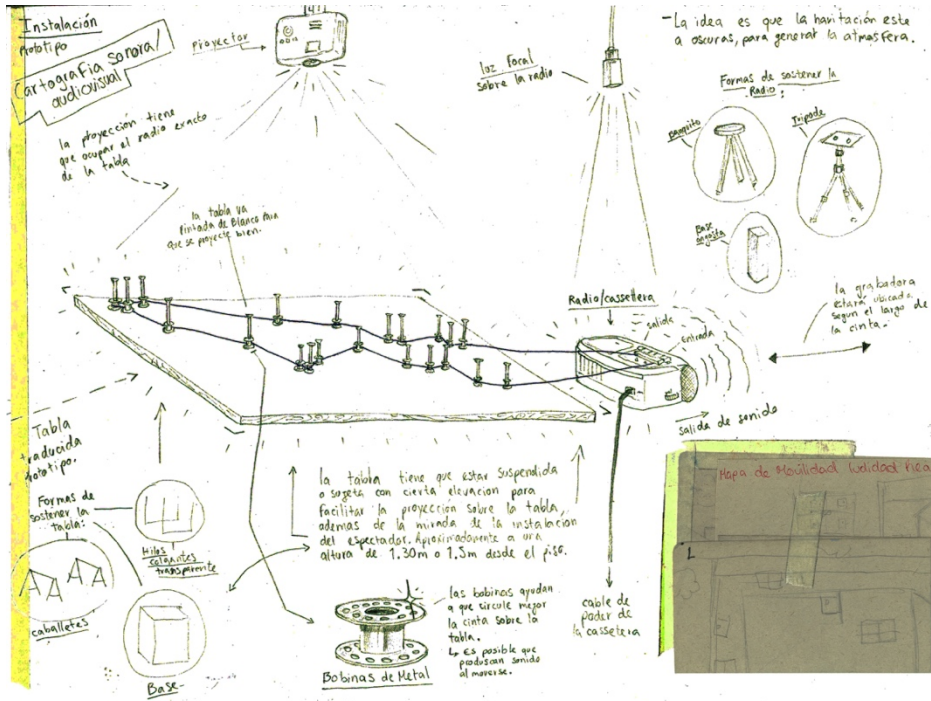 Instalación
prototipo
Cartografia sonora/
audiovisual
proyector
la proyección tiene
que ocupar el radio exacto
de la tabla
la tabla va
Pintada de Blanco para
que se proyecte bien.
loz focal
sobre la radio
-La idea es que la havitación este
a oscuras, para generar la atmosfera.
Formas de sostener la
Radio:
Banquito
Tripode
Base
angosta
Radio/cassettera
salida
entrada
la grabadora
estará ubicada
segun el largo de
la cinta.-
salida de sonido
Tabla
traducida
prototipo.
Formas de
sostener la
tabla:
Hilos
colgantes
transparente
caballetes
Base-
la tabla tiene que estar suspendida
o sujeta con cierta elevacion para
facilitar la proyección sobre la tabla,
ademas de la mirada de la instalacion
del espectador. Aproximadamente a una
altura de 1.30m o 1.5m desde el piso.
Bobinas de Metal
las bobinas ayudan
a que circule mejor
la cinta sobre la
tabla.
↳ Es posible que
produscan sonido
al moverse.
cable de
poder de
la cassetera
Mapa de Movilidad
1